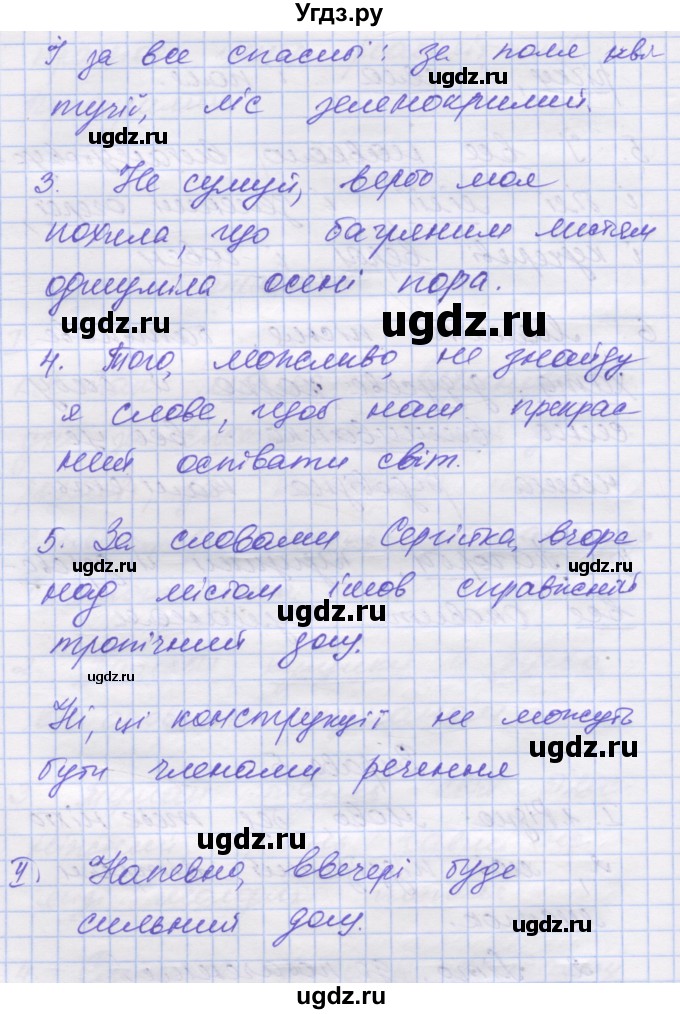 Угдз.ру
І за все спасибі: за поля кві
тучій, ліс зеленокрилий.
3. Не сумуй, вербо моя
похила, що багряним листям
одшуміла осені пора.
4. Того, можливо, не знайду
я слова, щоб наш прекрас
ний оспівати світ.
5. За словами Сергійка, вчора
над містом ішов справжній
тропічний дощ.
Ні, ці конструкції не можуть
бути членами речення
Напевно, ввечері буде
сильний дощ.
ugdz.ru
ugdz.ru
ugdz.ru
ugdz.ru
ugdz.ru
ugdz.ru
ugdz.ru
ugdz.ru
ugdz.ru
ugdz.ru
ugdz.ru
ugdz.ru